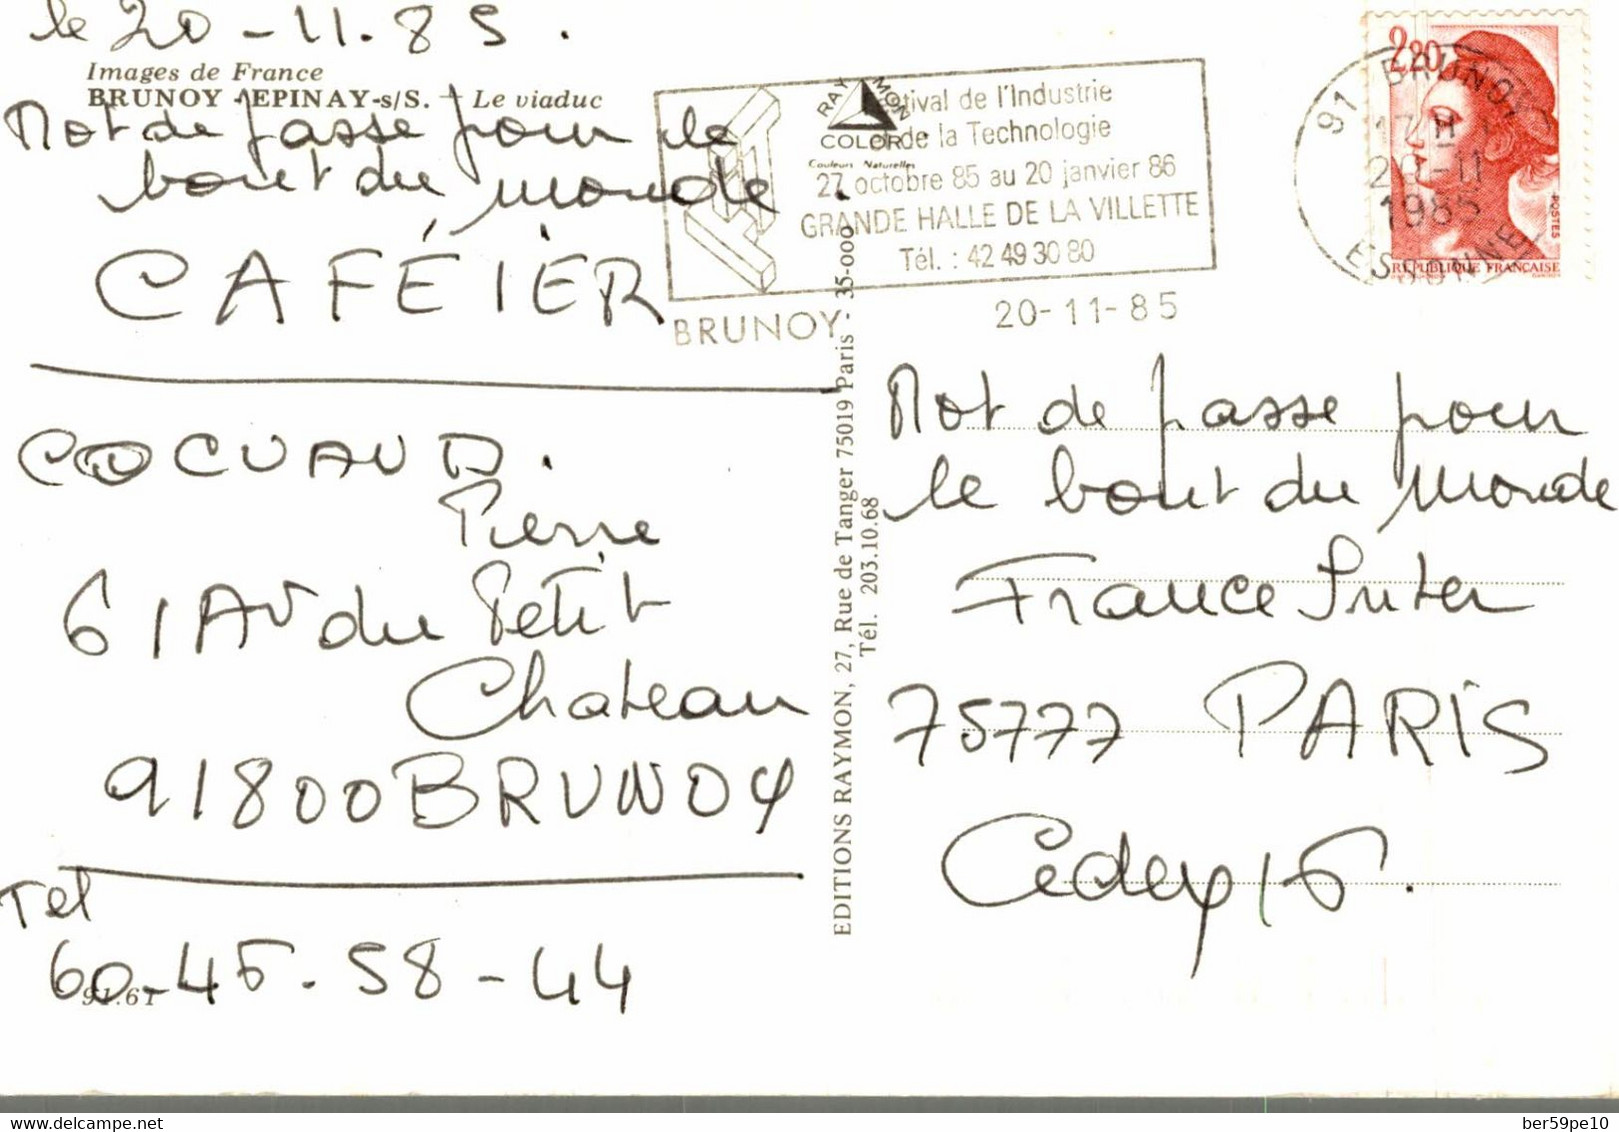 le 20-11.85.
Images de France
BRUNOY - EPINAY-s/S. - Le viaduc
Mot de passe pour le
bout du monde.
CAFÉIER
COCUAUD.
Pierre
61 Av du Petit
Chateau
91800 BRUNOY
Tel
60-45.58-44
91.61
RAYMON
COLOR
Couleurs Naturelles
Festival de l'Industrie
et de la Technologie
27 octobre 85 au 20 janvier 86
GRANDE HALLE DE LA VILLETTE
Tél. : 42 49 30 80
BRUNOY
20-11-85
EDITIONS RAYMON, 27, Rue de Tanger 75019 Paris - 35-000
Tél. 203.10.68
2,20
POSTES
REPUBLIQUE FRANÇAISE
91 BRUNOY
17 H
20-11
1985
ESSONNE
Mot de passe pour
le bout du monde
France Inter
75777 PARIS
Cedex 16.
ber59pe10